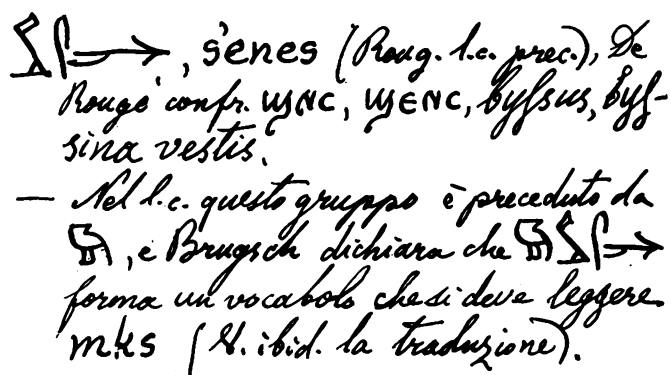 , s'enes (Roug. l.c. prec.), De
Rougé confr. ϣⲛⲥ, ϣⲉⲛⲥ, byſsus, byſ-
sina vestis.
— Nel l.c. questo gruppo è preceduto da
, e Brugsch dichiara che
forma un vocabolo che si deve leggere
m.k.s (V. ibid. la traduzione).